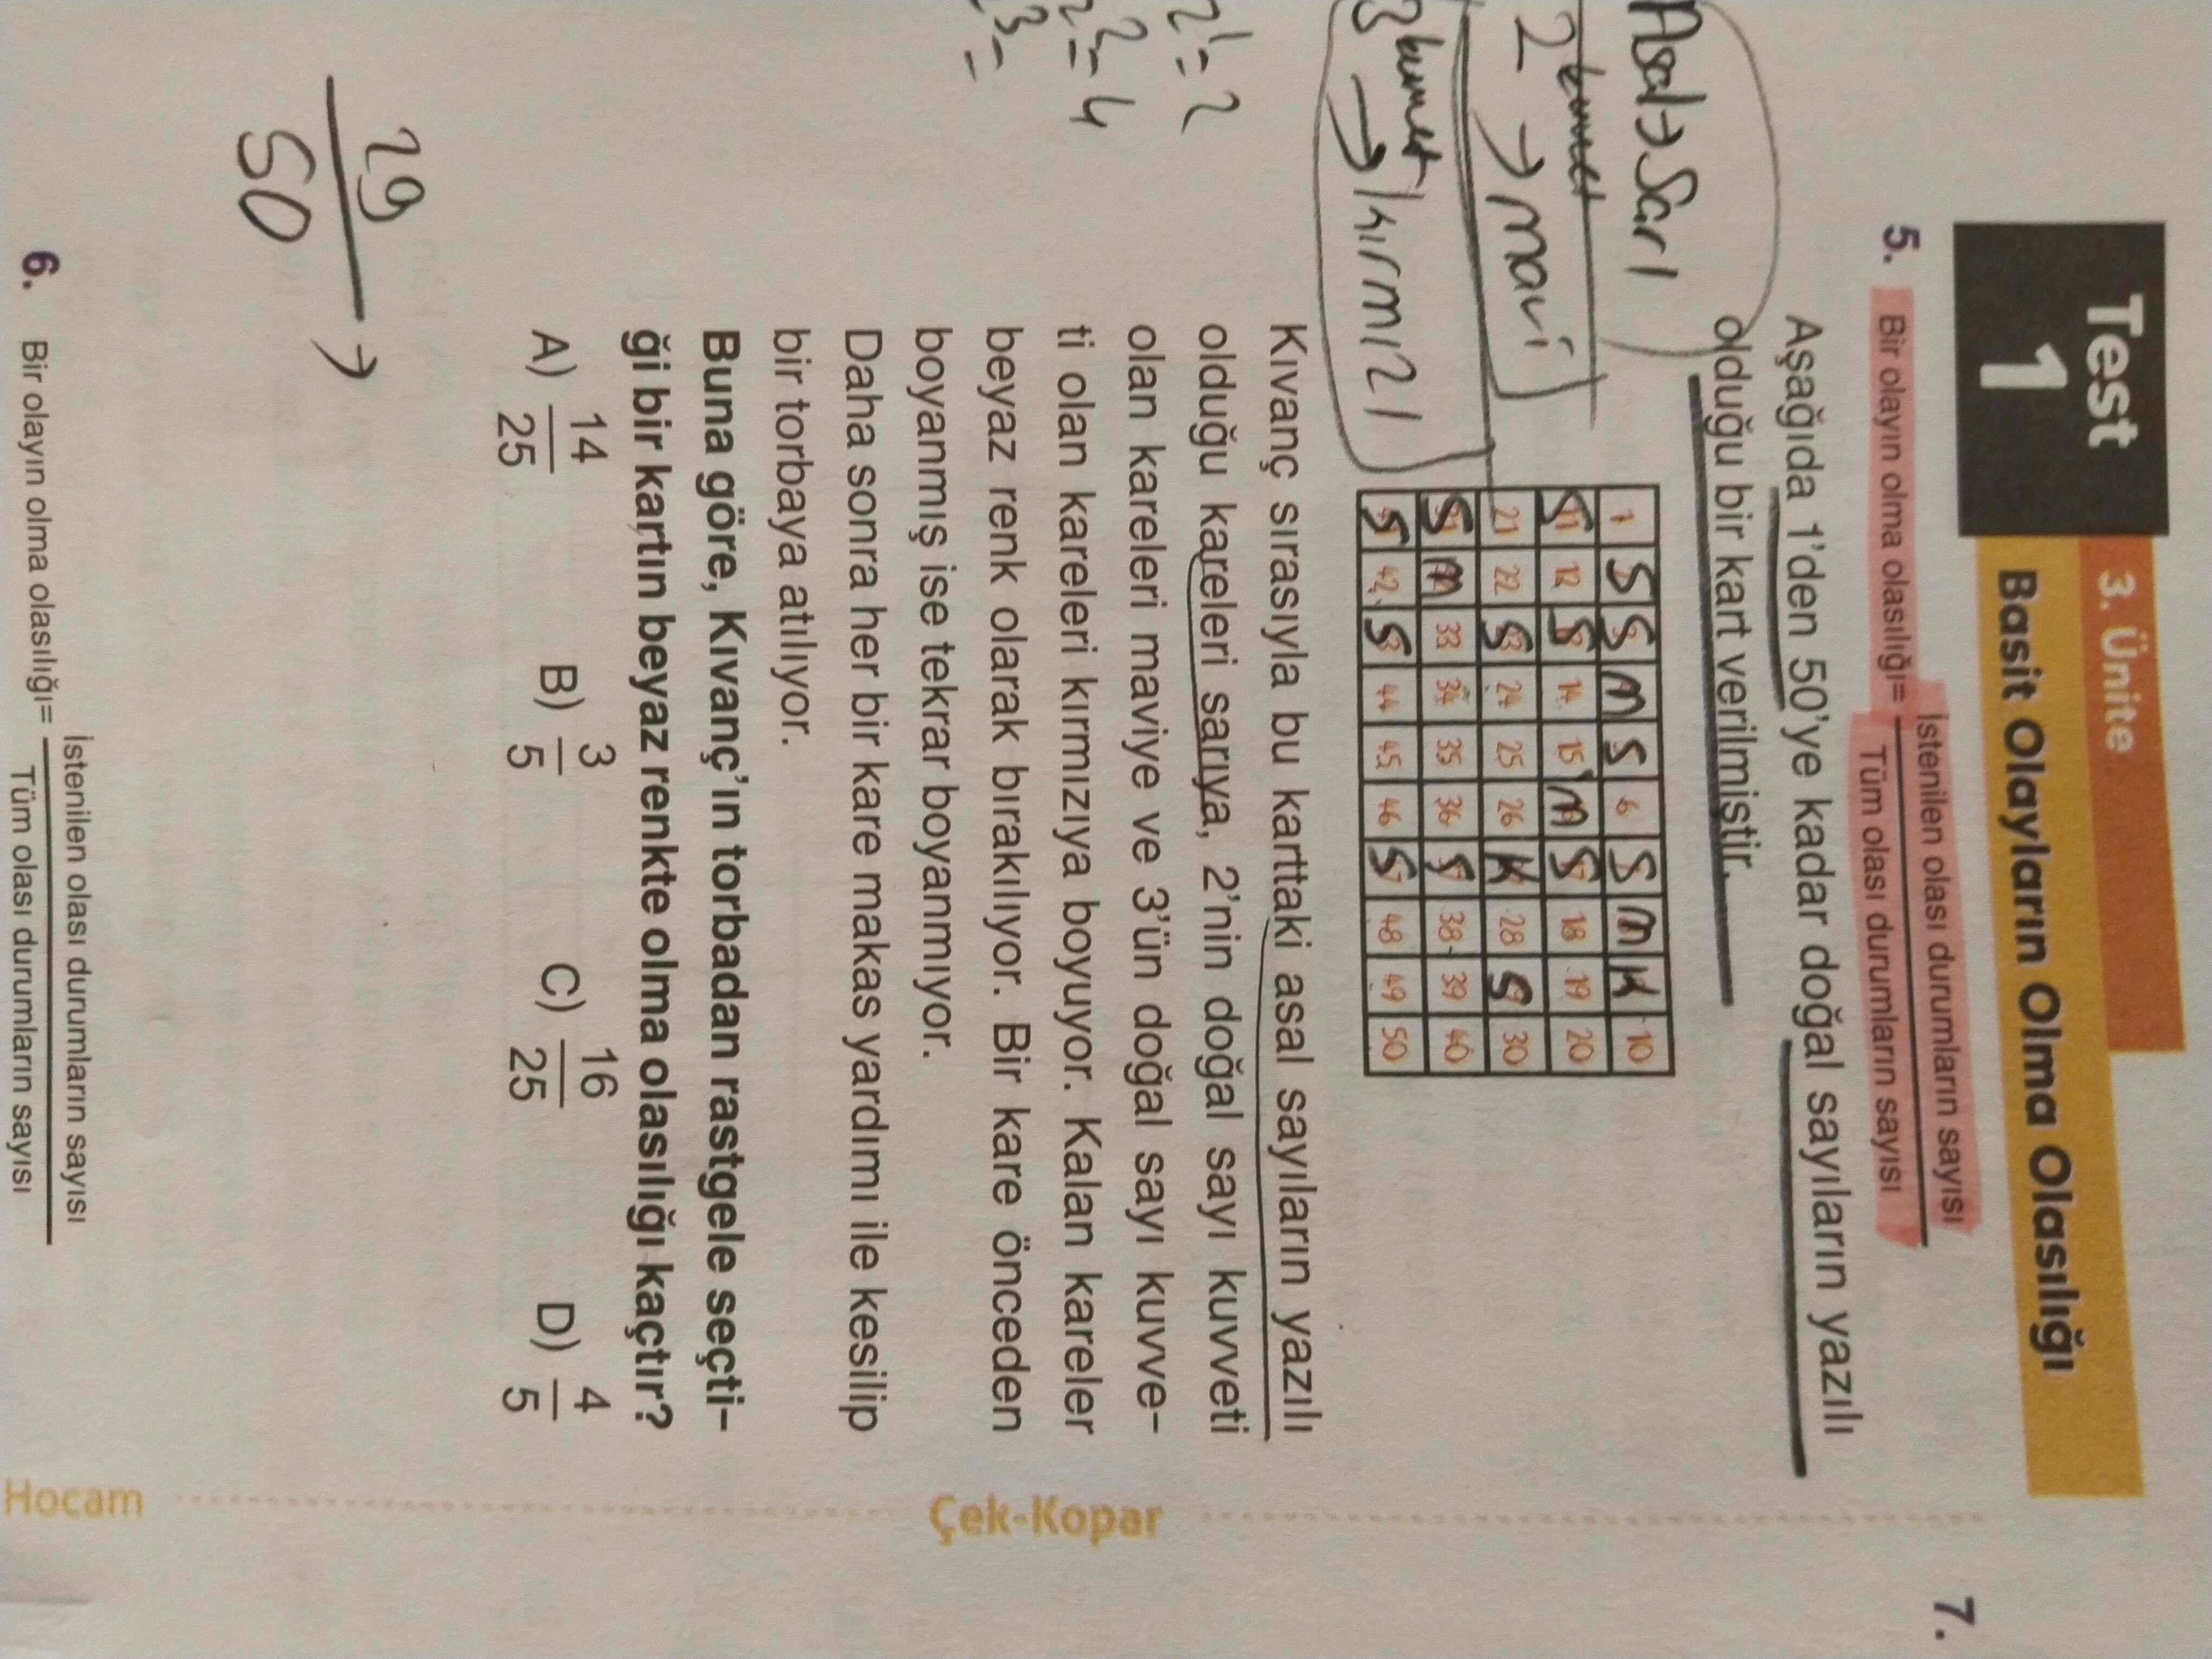 Test
1
3. Ünite
Basit Olayların Olma Olasılığı
5. Bir olayın olma olasılığı= İstenilen olası durumların sayısı
Tüm olası durumların sayısı
7.
Aşağıda 1'den 50'ye kadar doğal sayıların yazılı
olduğu bir kart verilmiştir.
Asal → Sarı
2 kuvvet
2 → mavi
3 kuvvet
→ kırmızı
1 S S M S 6 S M K 10
S 12 S 14 15 M S 18 19 20
21 22 S 24 25 26 K 28 S 30
S M 33 34 35 36 S 38 39 40
S 42 S 44 45 46 S 48 49 50
Kıvanç sırasıyla bu karttaki asal sayıların yazılı
olduğu kareleri sarıya, 2'nin doğal sayı kuvveti
olan kareleri maviye ve 3'ün doğal sayı kuvve-
ti olan kareleri kırmızıya boyuyor. Kalan kareler
beyaz renk olarak bırakılıyor. Bir kare önceden
boyanmış ise tekrar boyanmıyor.
2¹=2
2²=4
2³=
Daha sonra her bir kare makas yardımı ile kesilip
bir torbaya atılıyor.
Buna göre, Kıvanç'ın torbadan rastgele seçti-
ği bir kartın beyaz renkte olma olasılığı kaçtır?
A) 14/25 B) 3/5 C) 16/25 D) 4/5
29
50 →
Çek-Kopar
Hocam
6. Bir olayın olma olasılığı= İstenilen olası durumların sayısı
Tüm olası durumların sayısı